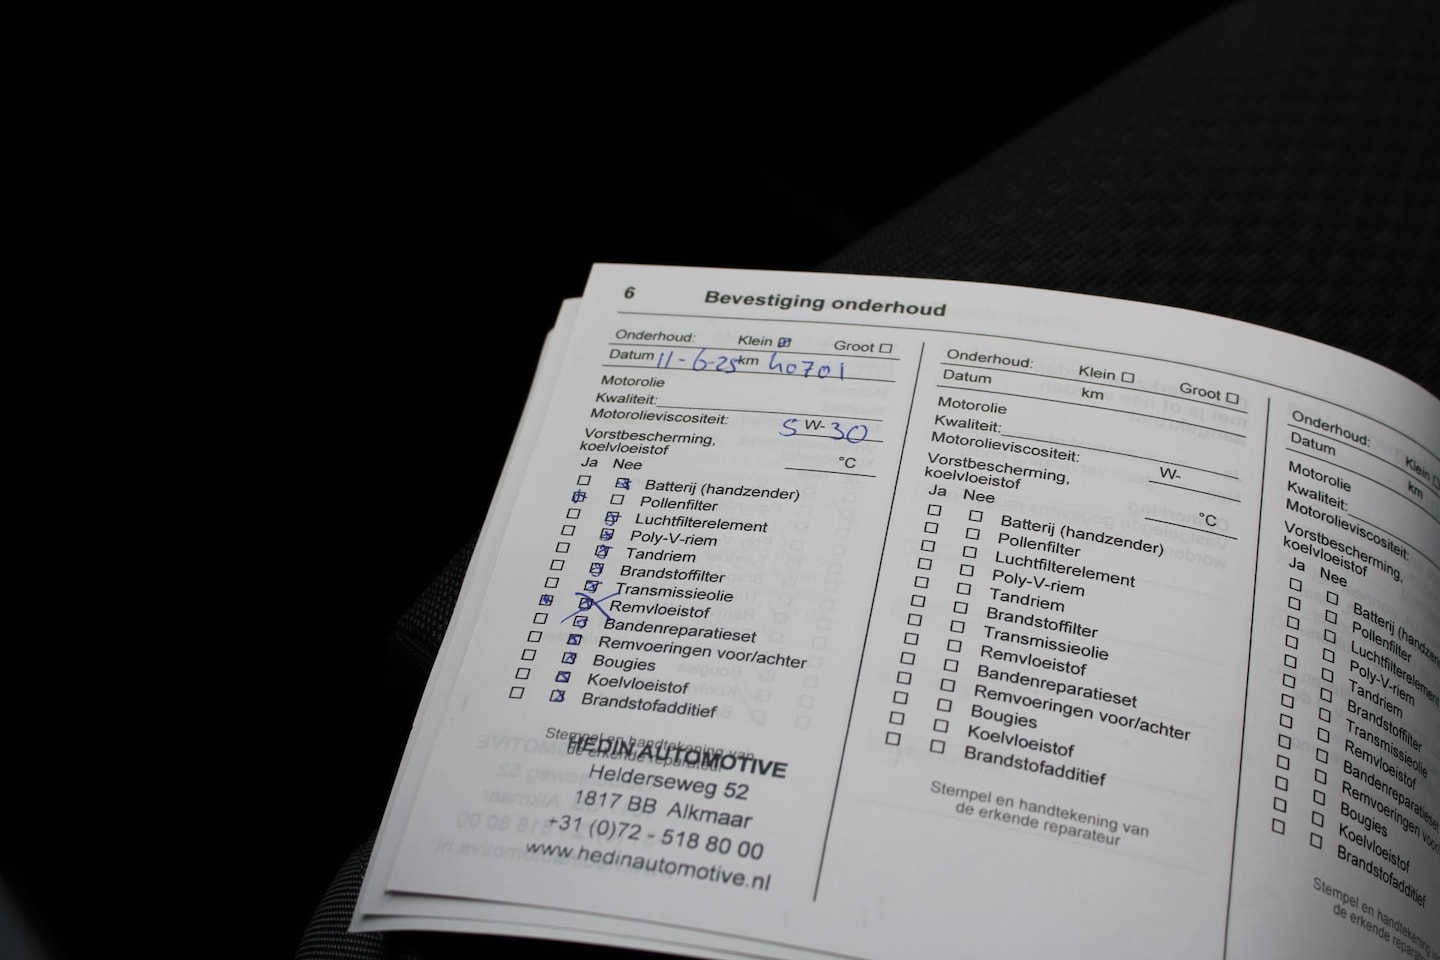 6 Bevestiging onderhoud
Onderhoud: Klein Groot
Datum 11-6-25 km 40701
Motorolie
Kwaliteit:
Motorolieviscositeit: 5 W- 30
Vorstbescherming,
koelvloeistof °C
Ja Nee
Batterij (handzender)
Pollenfilter
Luchtfilterelement
Poly-V-riem
Tandriem
Brandstoffilter
Transmissieolie
Remvloeistof
Bandenreparatieset
Remvoeringen voor/achter
Bougies
Koelvloeistof
Brandstofadditief
Stempel en handtekening van
de erkende reparateur
HEDIN AUTOMOTIVE
Helderseweg 52
1817 BB Alkmaar
+31 (0)72 - 518 80 00
www.hedinautomotive.nl
Onderhoud: Klein Groot
Datum km
Motorolie
Kwaliteit:
Motorolieviscositeit: W-
Vorstbescherming,
koelvloeistof °C
Ja Nee
Batterij (handzender)
Pollenfilter
Luchtfilterelement
Poly-V-riem
Tandriem
Brandstoffilter
Transmissieolie
Remvloeistof
Bandenreparatieset
Remvoeringen voor/achter
Bougies
Koelvloeistof
Brandstofadditief
Stempel en handtekening van
de erkende reparateur
Onderhoud: Klein
Datum km
Motorolie
Kwaliteit:
Motorolieviscositeit:
Vorstbescherming,
koelvloeistof
Ja Nee
Batterij (handzen
Pollenfilter
Luchtfilterelement
Poly-V-riem
Tandriem
Brandstoffilter
Transmissieolie
Remvloeistof
Bandenreparatieset
Remvoeringen voor
Bougies
Koelvloeistof
Brandstofadditief
Stempel en handtekening
de erkende reparateur